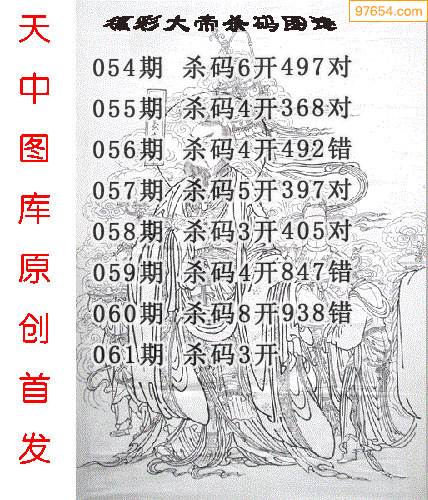 97654.com
彩大帝杀码图
天中图库原创首发
054期 杀码6开497对
055期 杀码4开368对
056期 杀码4开492错
057期 杀码5开397对
058期 杀码3开405对
059期 杀码4开847错
060期 杀码8开938错
061期 杀码3开